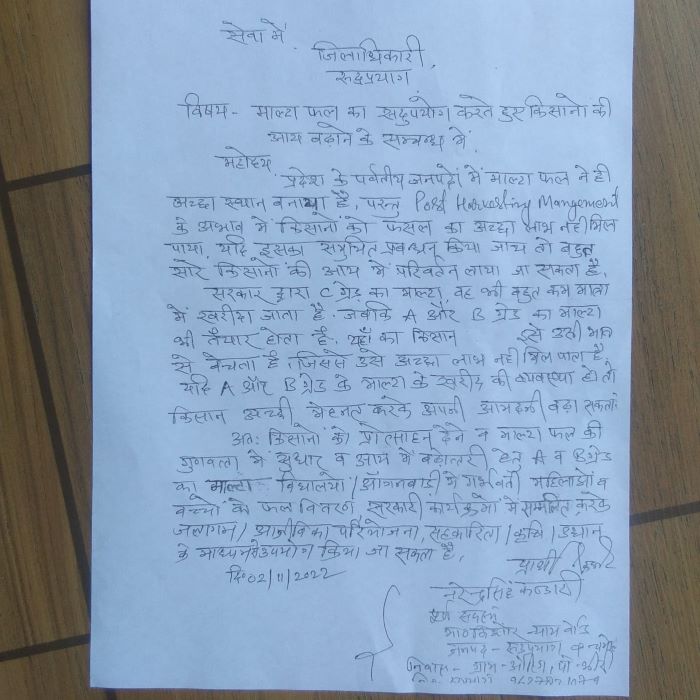 सेवा में,
जिलाधिकारी,
रुद्रप्रयाग
विषय- माल्टा फल का सदुपयोग करते हुए किसानों की
आय बढ़ाने के सम्बन्ध में.
महोदय,
प्रदेश के पर्वतीय जनपदों में माल्टा फल ने ही
अच्छा स्थान बनाया है, परन्तु Post Harvesting Mangement
के अभाव में किसानों को फसल का अच्छा लाभ नहीं मिल
पाया. यदि इसका समुचित प्रबन्धन किया जाय तो बहुत
सारे किसानों की आय में परिवर्तन लाया जा सकता है,
सरकार द्वारा C ग्रेड का माल्टा, वह भी बहुत कम मात्रा
में खरीदा जाता है. जबकि A और B ग्रेड का माल्टा
भी तैयार होता है. यहाँ का किसान इसे उसी भाव
से बेचता है, जिससे उसे अच्छा लाभ नहीं मिल पाता है.
यदि A और B ग्रेड के माल्टा के खरीद की व्यवस्था हो तो
किसान अच्छी मेहनत करके अपनी आमदनी बढ़ा सकता
अतः किसानों को प्रोत्साहन देने व माल्टा फल की
गुणवत्ता में सुधार व आय में बढ़ोतरी हेतु A व B ग्रेड
का माल्टा विद्यालयों/ आँगनबाड़ी में गर्भवती महिलाओं व
बच्चों को फल वितरण सरकारी कार्यक्रमों में सम्मलित करके
जलागम/ आजीविका परियोजना, सहकारिता/ कृषि/ उद्यान
के माध्यम से उपयोग किया जा सकता है,
दि० 02/11/2022
प्रार्थी
नरेन्द्र सिंह कण्डारी
पूर्व सदस्य
किशोर न्याय बोर्ड
जनपद - रुद्रप्रयाग व
निवास - ग्राम -